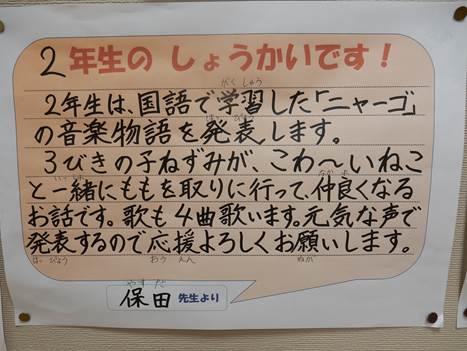 2年生の しょうかいです!
2年生は、国語で学習した「ニャーゴ」
の音楽物語を発表します。
3びきの子ねずみが、こわ〜いねこ
と一緒にももを取りに行って、仲良くなる
お話です。歌も4曲歌います。元気な声で
発表するので応援よろしくお願いします。
保田 先生より